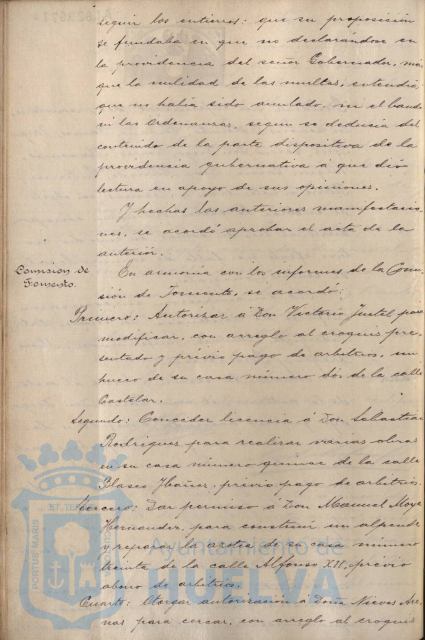 seguir los entierros: que su proposición
se fundaba en que no declarándose en
la providencia del señor Gobernador, más
que la nulidad de las multas, entendía
que no había sido anulado, ni el bando
ni las Ordenanzas, según se deducía del
contenido de la parte dispositiva de la
providencia gubernativa á que dió
lectura en apoyo de sus opiniones.
Y hechas las anteriores manifestacio-
nes, se acordó aprobar el acta de la
anterior.
Comisión de
Fomento.
En armonía con los informes de la Comi-
sión de Fomento, se acordó:
Primero: Autorizar á Don Victorio Justel para
modificar, con arreglo al croquis pre-
sentado y previo pago de arbitrios, un
hueco de su casa número dos de la calle
Castelar.
Segundo: Conceder licencia á Don Sebastian
Rodriguez para realizar varias obras
en su casa número quince de la calle
Blasco Ibañez, previo pago de arbitrios.
Tercero: Dar permiso á Don Manuel Moya
Hernandez, para construir un alpende
y reparar la azotea de su casa número
treinta de la calle Alfonso XII, previo
abono de arbitrios.
Cuarto: Otorgar autorización á Doña Nieves Are-
nas para cercar, con arreglo al croquis
Ayuntamiento de
HUELVA
PORTUS MARIS